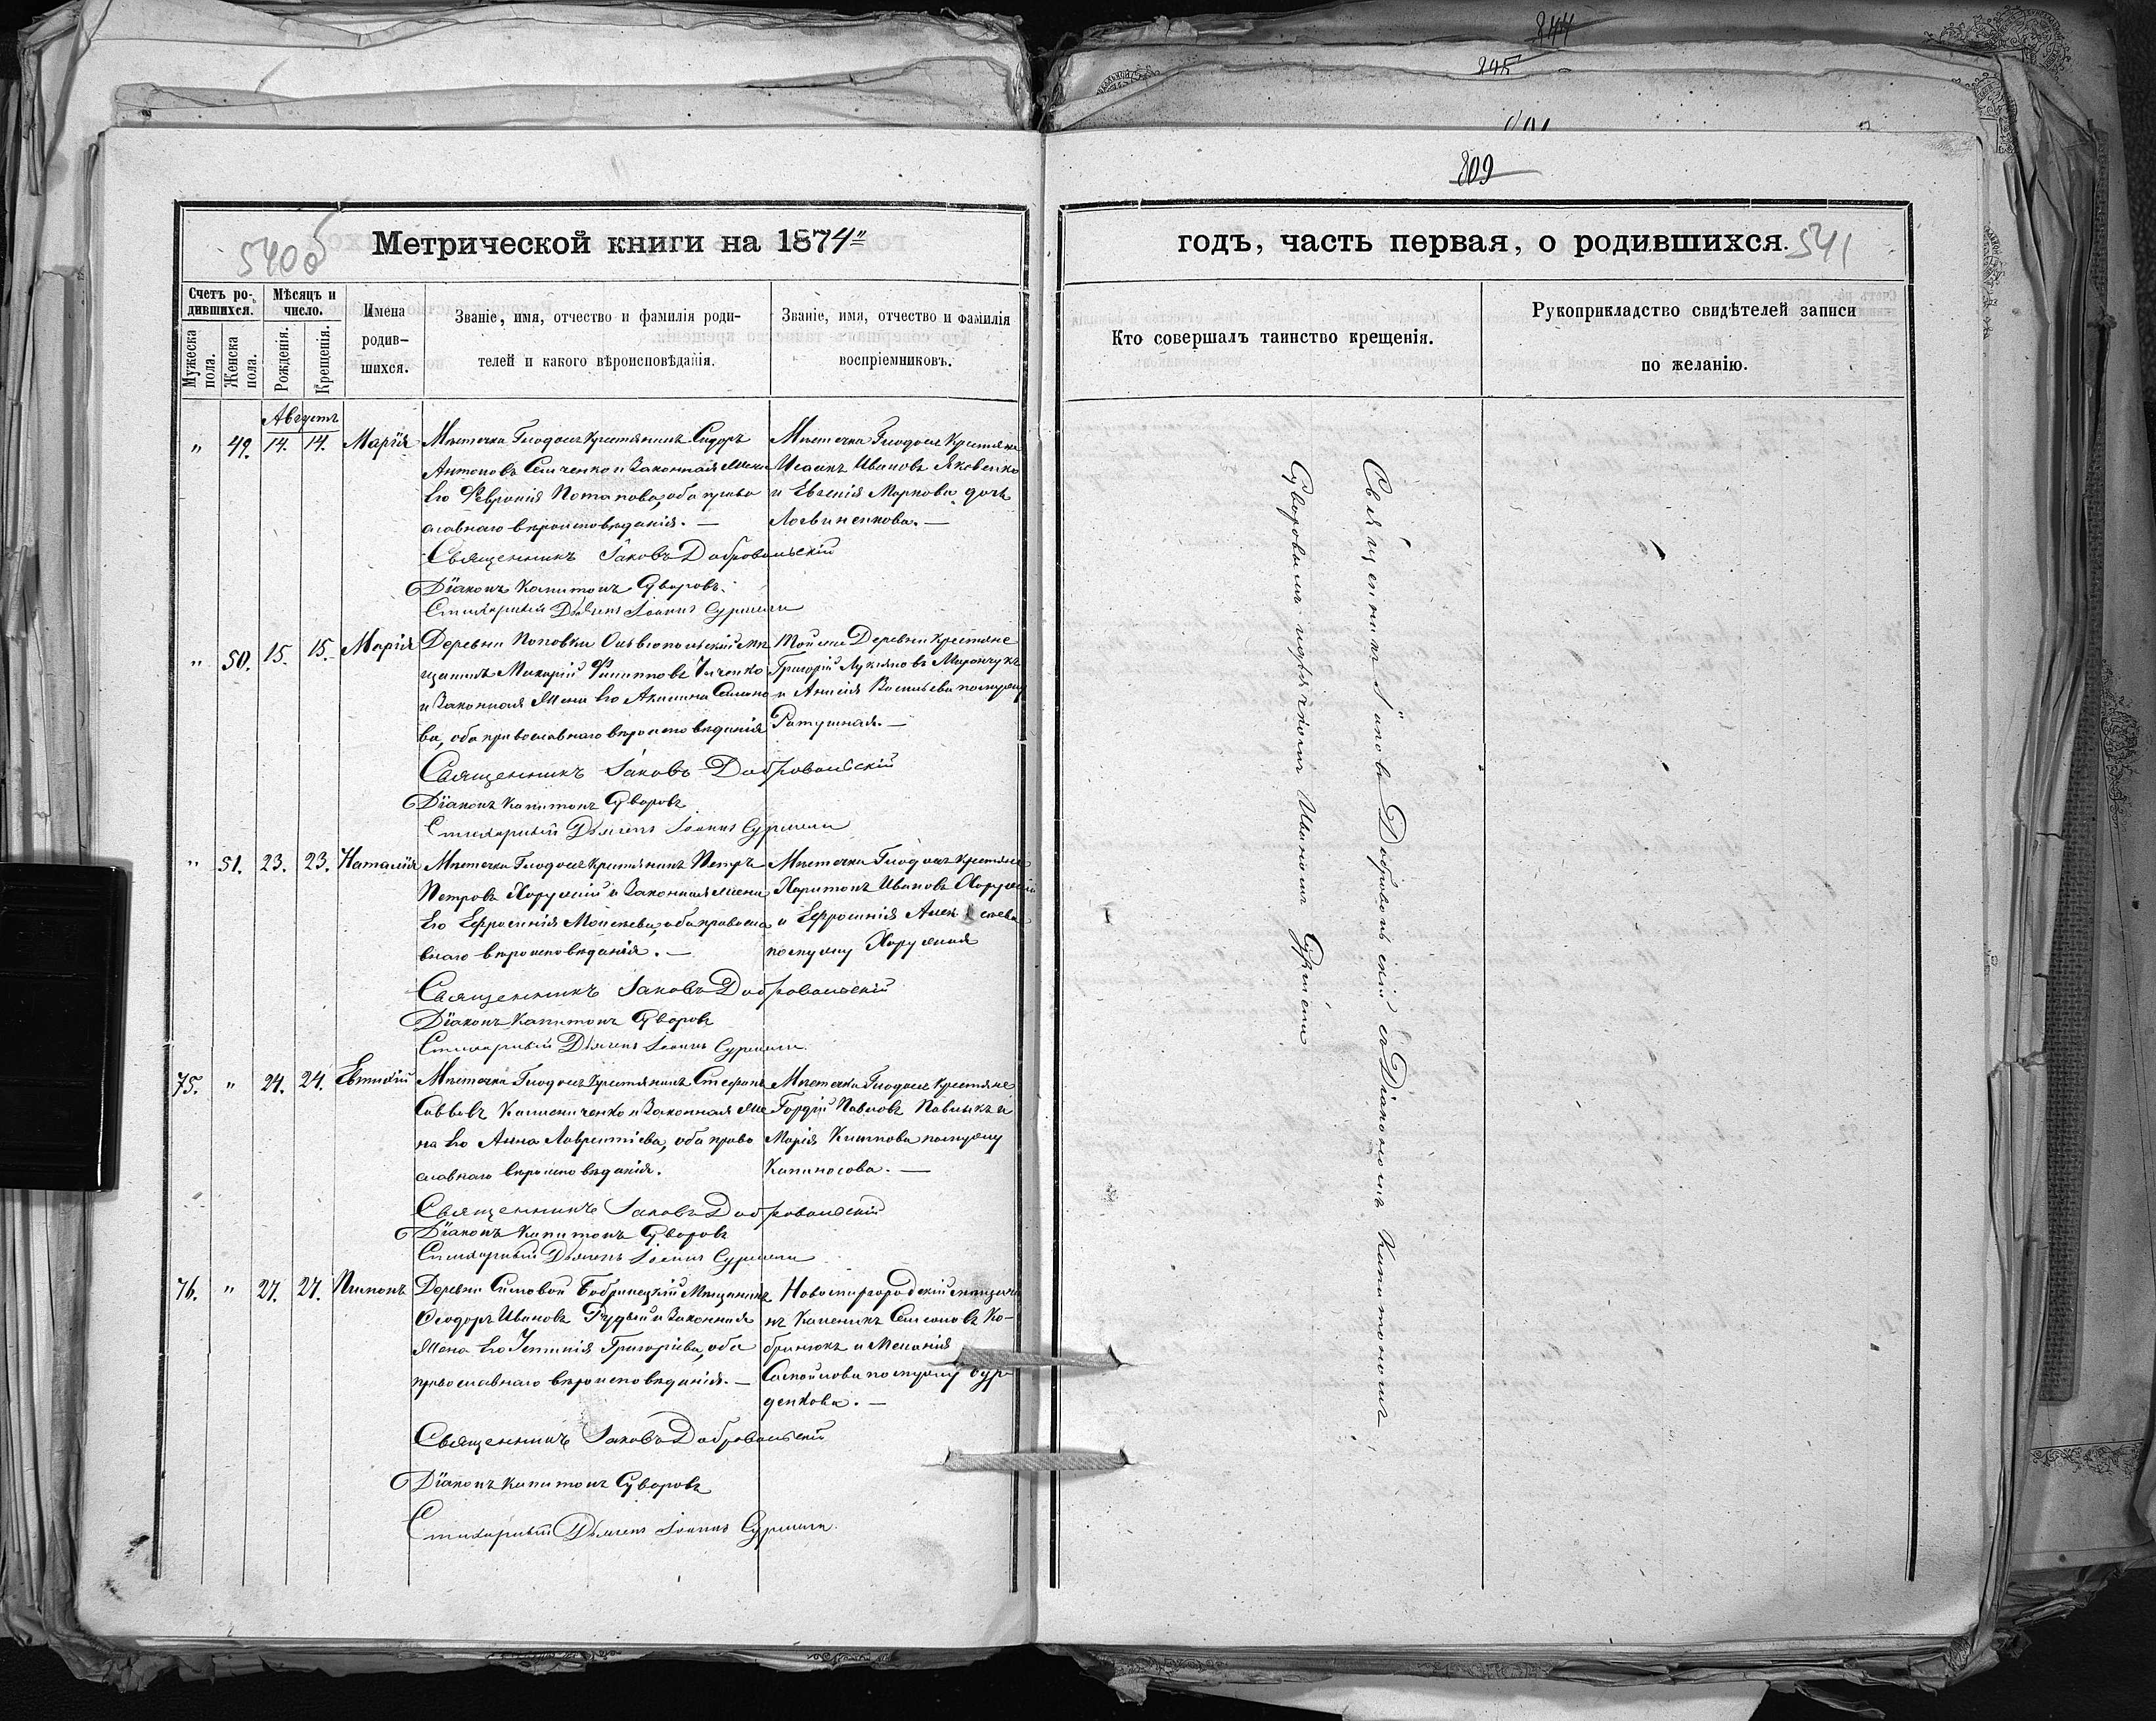 844
245
809
540об
Метрической книги на 1874"
Счетъ ро-
дившихся.
Мужеска
пола.
Женска
пола.
Мѣсяцъ и
число.
Рожденія.
Крещенія.
Имена
родив-
шихся.
Званіе, имя, отчество и фамилія роди-
телей и какого вѣроисповѣданія.
Званіе, имя, отчество и фамилія
воспріемниковъ.
годъ, часть первая, о родившихся.
541
Кто совершалъ таинство крещенія.
Рукоприкладство свидѣтелей записи
по желанію.
Августъ
" 49. 14. 14. Марія
Мѣстечка Глодосъ Крестьянинъ Сидоръ
Антоновъ и Законная Жена
Его Февронія Потапова, оба право
славнаго вѣроисповѣданія. —
Мѣстечка Глодосъ Крестьяне
Исаакъ Ивановъ Яковенко
и Евгенія Маркова дочь
Логвиненкова. —
Священникъ Іаковъ Добровольскій
Діаконъ Капитонъ Суворовъ.
Стихарный Дьячекъ Іоаннъ
" 50. 15. 15. Марія
Деревни Поповки Ольвіопольскій мѣ
щанинъ Макарій Филипповъ
и Законная Жена Его Акилина Семено
ва, оба православнаго вѣроисповѣданія
Той же Деревни Крестьяне
Григорій Лукьяновъ Маранчукъ
и Анисія Васильева по мужу
Ратушная. —
Священникъ Іаковъ Добровольскій
Діаконъ Капитонъ Суворовъ
Стихарный Дьячекъ Іоаннъ
" 51. 23. 23. Наталія
Мѣстечка Глодосъ Крестьянинъ Петръ
Петровъ Харужій и Законная жена
Его Ефросинія Моисеева, оба правосла
внаго вѣроисповѣданія. —
Мѣстечка Глодосъ Крестьяне
Харитонъ Ивановъ Харужій
и Ефросинія Алексѣева
по мужу Харужая
Священникъ Іаковъ Добровольскій
Діаконъ Капитонъ Суворовъ
Стихарный Дьячекъ Іоаннъ
75. " 24. 24. Евтихій
Мѣстечка Глодосъ Крестьянинъ Стефанъ
Саввовъ и Законная Же
на Его Анна Лаврентіева, оба право
славнаго вѣроисповѣданія.
Мѣстечка Глодосъ Крестьяне
Гордій Павловъ Павлыкъ и
Марія по мужу
Капиносова. —
Священникъ Іаковъ Добровольскій
Діаконъ Капитонъ Суворовъ
Стихарный Дьячекъ Іоаннъ
76. " 27. 27. Пименъ
Деревни Бобринецкій Мѣщанинъ
Ѳеодоръ Ивановъ Рудый и Законная
Жена Его Григоріева, оба
православнаго вѣроисповѣданія. —
Новомиргородскій мѣщани
нъ Каленикъ Семеновъ Ко-
бранюкъ и Меланія
Самойлова по мужу Бур
денкова. —
Священникъ Іаковъ Добровольскій
Діаконъ Капитонъ Суворовъ
Стихарный Дьячекъ Іоаннъ
Священникъ Іаковъ Добровольскій съ Діакономъ Капитономъ
Суворовымъ и дьячкомъ Иваномъ